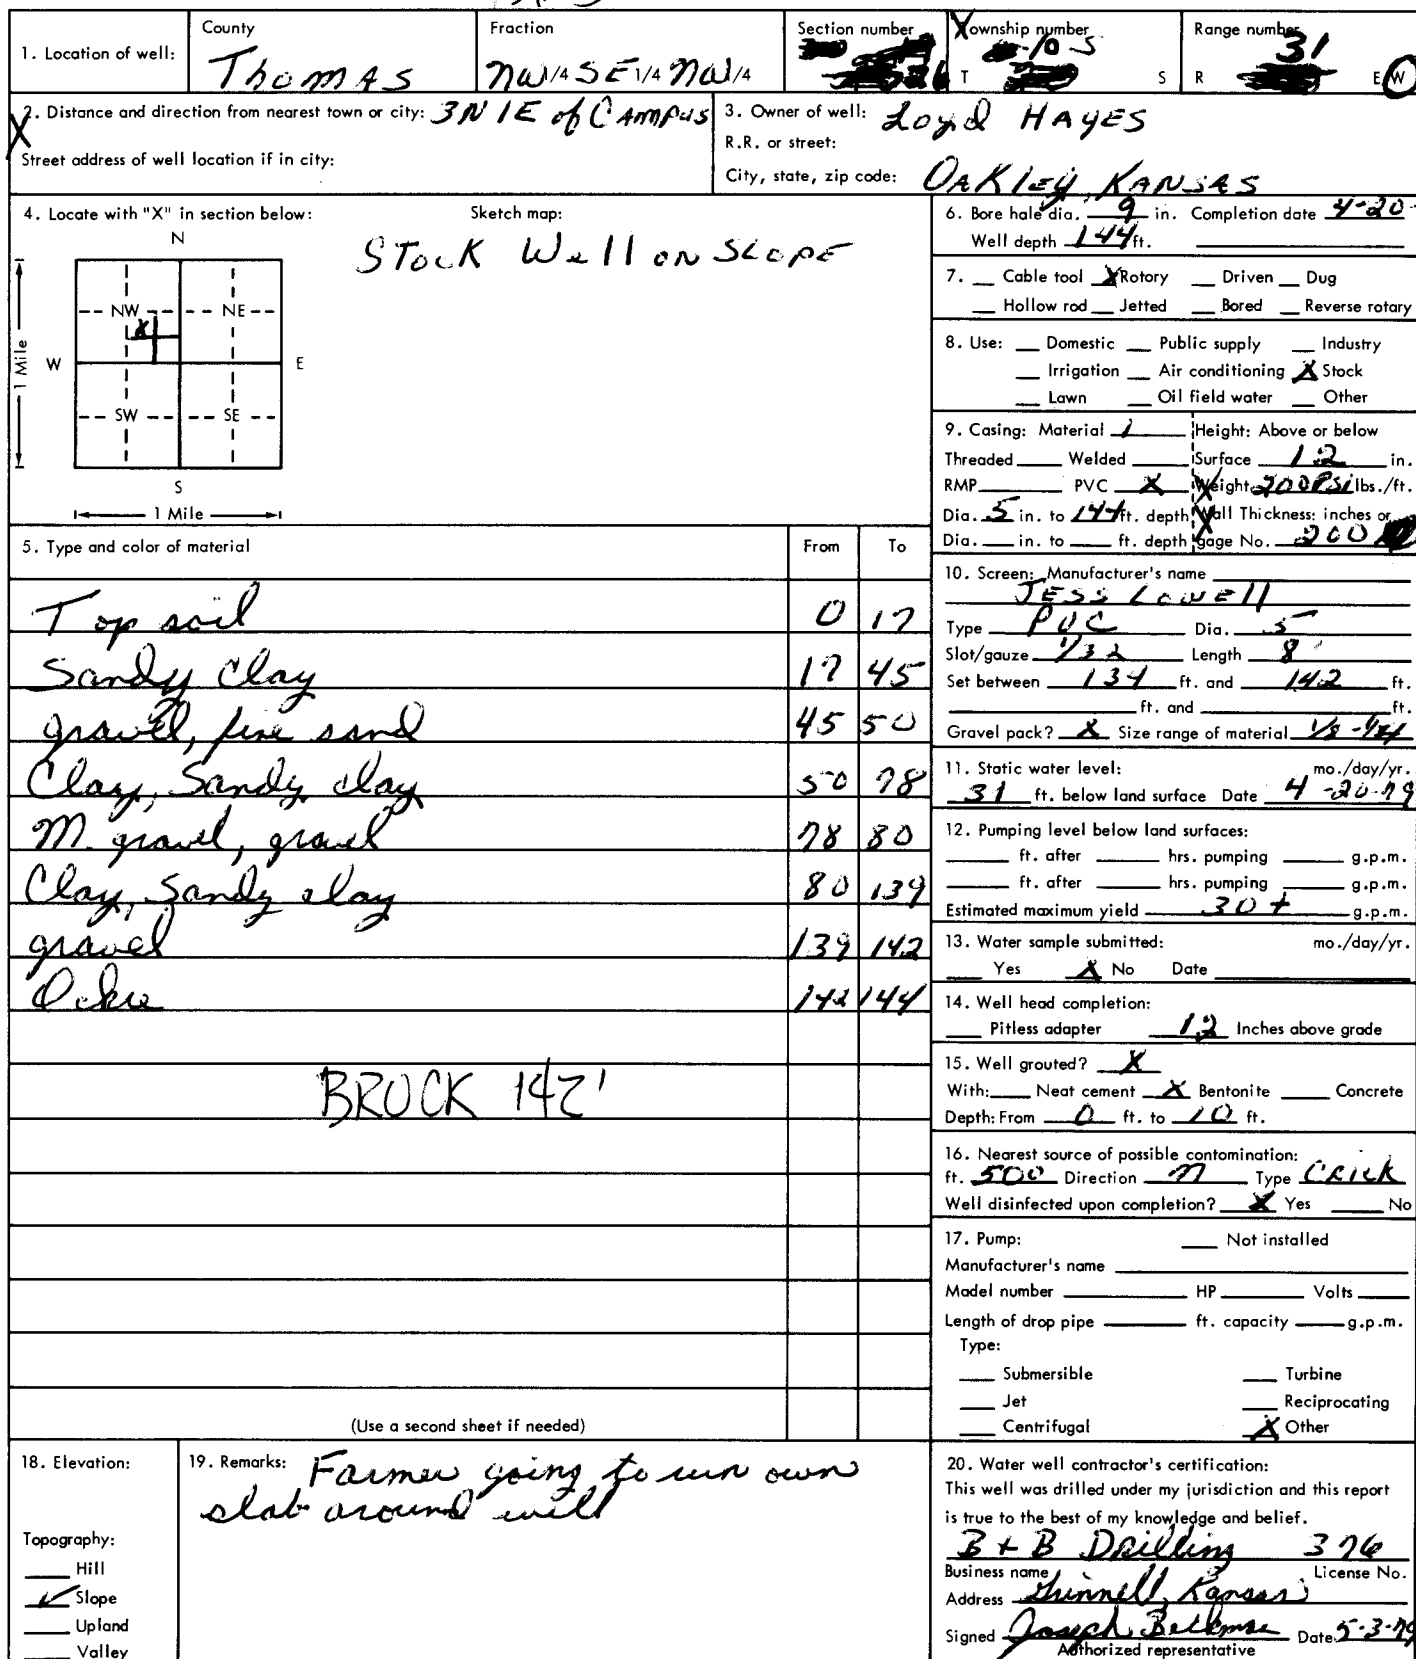 County Fraction Section number Township number Range number
1. Location of well: Thomas NW 1/4 SE 1/4 NW 1/4 T 10 S S R 31 E W
2. Distance and direction from nearest town or city: 3N 1E of Campus
Street address of well location if in city:
3. Owner of well: Loyd HAYES
R.R. or street:
City, state, zip code: OAKley, KANSAS
4. Locate with "X" in section below: Sketch map:
STock Well on SLOPE
N
NW NE
X
W E
1 Mile
SW SE
S
1 Mile
5. Type and color of material From To
Top soil 0 17
Sandy Clay 17 45
gravel, fine sand 45 50
Clay, Sandy clay 50 78
M. gravel, gravel 78 80
Clay, Sandy clay 80 139
gravel 139 142
142 144
BRUCK 142'
(Use a second sheet if needed)
6. Bore hale dia. 9 in. Completion date 4-20-
Well depth 144 ft.
7. Cable tool X Rotory Driven Dug
Hollow rod Jetted Bored Reverse rotary
8. Use: Domestic Public supply Industry
Irrigation Air conditioning X Stock
Lawn Oil field water Other
9. Casing: Material 1 Height: Above or below
Threaded Welded Surface 12 in.
RMP PVC X Weight 200 PSi lbs./ft.
Dia. 5 in. to 144 ft. depth Wall Thickness: inches or
Dia. in. to ft. depth gage No. 200
10. Screen: Manufacturer's name
JESS LOWEll
Type PVC Dia. 5
Slot/gauze 1/32 Length 8'
Set between 134 ft. and 142 ft.
ft. and ft.
Gravel pack? X Size range of material 1/8 - 1/4
11. Static water level: mo./day/yr.
31 ft. below land surface Date 4-20-79
12. Pumping level below land surfaces:
ft. after hrs. pumping g.p.m.
ft. after hrs. pumping g.p.m.
Estimated maximum yield 30+ g.p.m.
13. Water sample submitted: mo./day/yr.
Yes X No Date
14. Well head completion:
Pitless adapter 12 Inches above grade
15. Well grouted? X
With: Neat cement X Bentonite Concrete
Depth: From 0 ft. to 10 ft.
16. Nearest source of possible contomination:
ft. 500 Direction N Type CRicK
Well disinfected upon completion? X Yes No
17. Pump: Not installed
Manufacturer's name
Model number HP Volts
Length of drop pipe ft. capacity g.p.m.
Type:
Submersible Turbine
Jet Reciprocating
Centrifugal X Other
18. Elevation:
Topography:
Hill
✓ Slope
Upland
Valley
19. Remarks: Farmer going to run own
slab around will
20. Water well contractor's certification:
This well was drilled under my jurisdiction and this report
is true to the best of my knowledge and belief.
B + B Drilling 376
Business name License No.
Address Grinnell, Kansas
Signed Joseph Date 5-3-79
Authorized representative